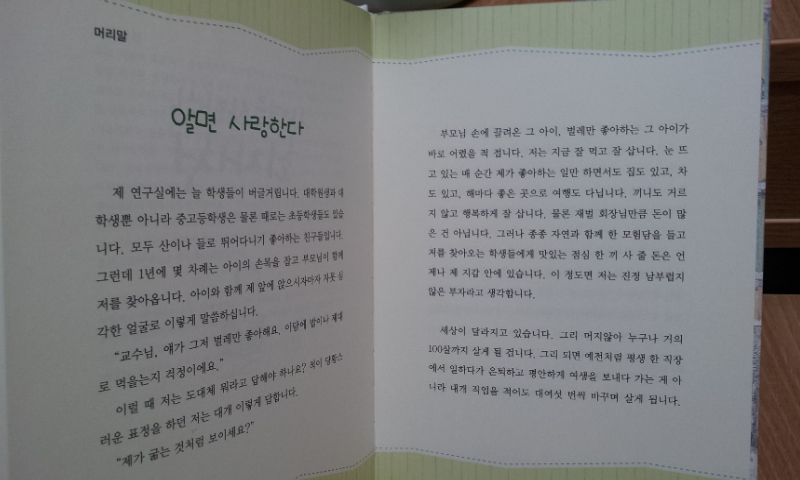 머리말
알면 사랑한다
제 연구실에는 늘 학생들이 버글거립니다. 대학원생과 대
학생뿐 아니라 중고등학생은 물론 때로는 초등학생들도 있습
니다. 모두 산이나 들로 뛰어다니기 좋아하는 친구들입니다.
그런데 1년에 몇 차례는 아이의 손목을 잡고 부모님이 함께
저를 찾아옵니다. 아이와 함께 제 앞에 앉으시자마자 자못 심
각한 얼굴로 이렇게 말씀하십니다.
“교수님, 얘가 그저 벌레만 좋아해요. 이담에 밥이나 제대
로 먹을는지 걱정이에요.”
이럴 때 저는 도대체 뭐라고 답해야 하나요? 적이 당황스
러운 표정을 하던 저는 대개 이렇게 답합니다.
“제가 굶는 것처럼 보이세요?”
부모님 손에 끌려온 그 아이, 벌레만 좋아하는 그 아이가
바로 어렸을 적 접니다. 저는 지금 잘 먹고 잘 삽니다. 눈 뜨
고 있는 매 순간 제가 좋아하는 일만 하면서도 집도 있고, 차
도 있고, 해마다 좋은 곳으로 여행도 다닙니다. 끼니도 거르
지 않고 행복하게 잘 삽니다. 물론 재벌 회장님만큼 돈이 많
은 건 아닙니다. 그러나 종종 자연과 함께 한 모험담을 듣고
저를 찾아오는 학생들에게 맛있는 점심 한 끼 사 줄 돈은 언
제나 제 지갑 안에 있습니다. 이 정도면 저는 진정 남부럽지
않은 부자라고 생각합니다.
세상이 달라지고 있습니다. 그리 머지않아 누구나 거의
100살까지 살게 될 겁니다. 그리 되면 예전처럼 평생 한 직장
에서 일하다가 은퇴하고 평안하게 여생을 보내다 가는 게 아
니라 내개 직업을 적어도 대여섯 번씩 바꾸며 살게 됩니다.